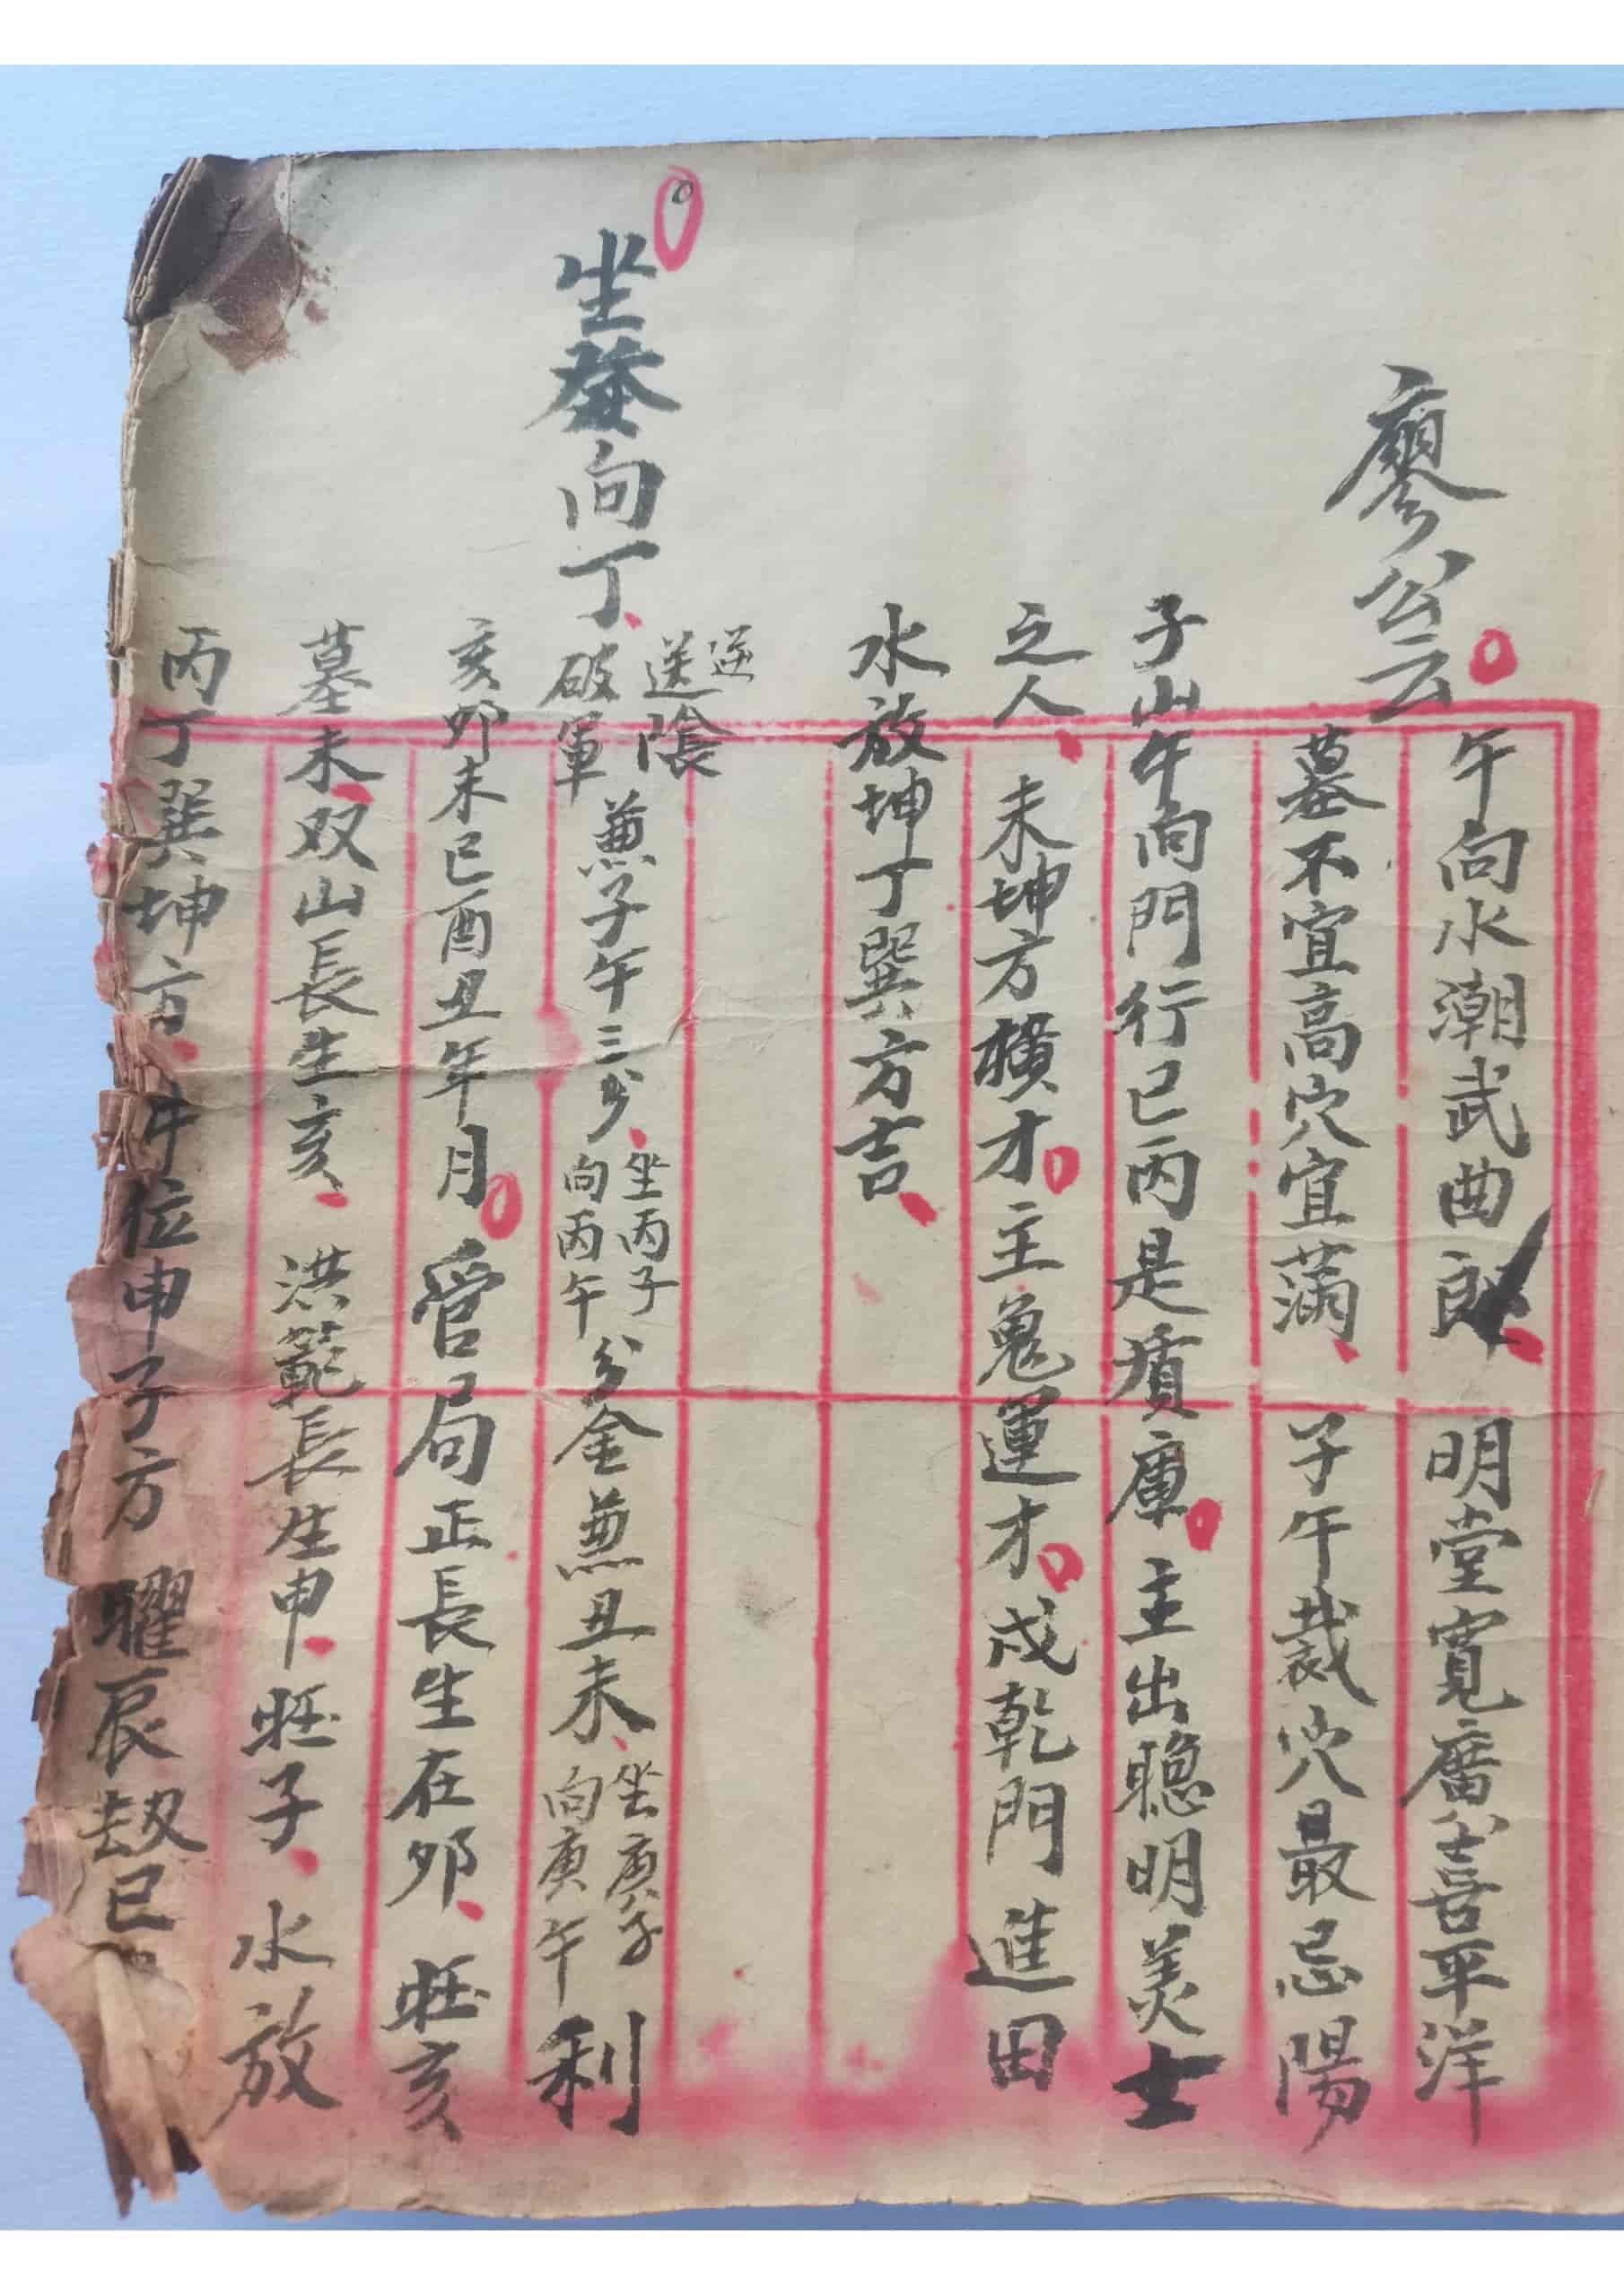 廖公云
午向水潮武曲郎 明堂寬廣喜平洋
墓不宜高穴宜滿 子午裁穴最忌陽
子山午向門行巳丙是廣庫 主出聰明美女
之人 未坤方橫才 主鬼運才 戍乾門進田
水放坤丁巽方吉
坐癸向丁
逆
送陰
破軍
兼子午三分
坐丙子
向丙午
分金兼丑未
坐庚子
向庚午
利
亥卯未巳酉丑年月 官局正長生在卯 旺亥
墓未 双山長生亥 洪範長生申 旺子 水放
丙丁巽坤方 牛位申子方 曜辰劫巳